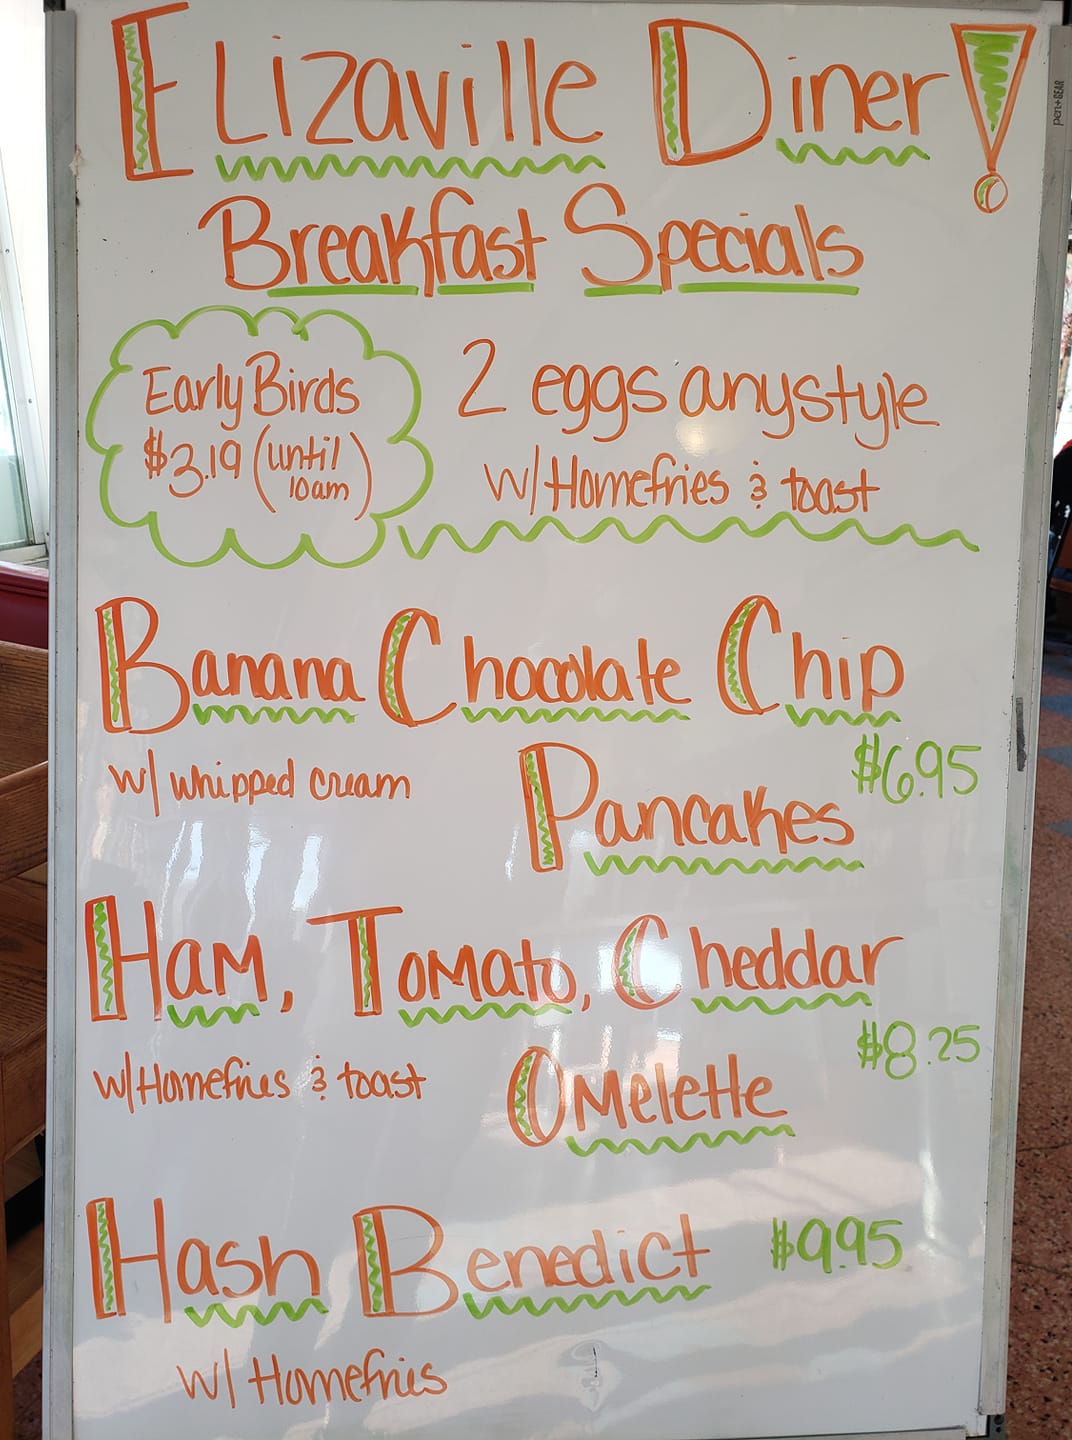 Elizaville Diner!
Breakfast Specials
Early Birds
$3.19 (until
10am)
2 eggs anystyle
w/ Homefries & toast
Banana Chocolate Chip
Pancakes
$6.95
w/ whipped cream
Ham, Tomato, Cheddar
Omelette
$8.25
w/ Homefries & toast
Hash Benedict $9.95
w/ Homefries
pen+GEAR